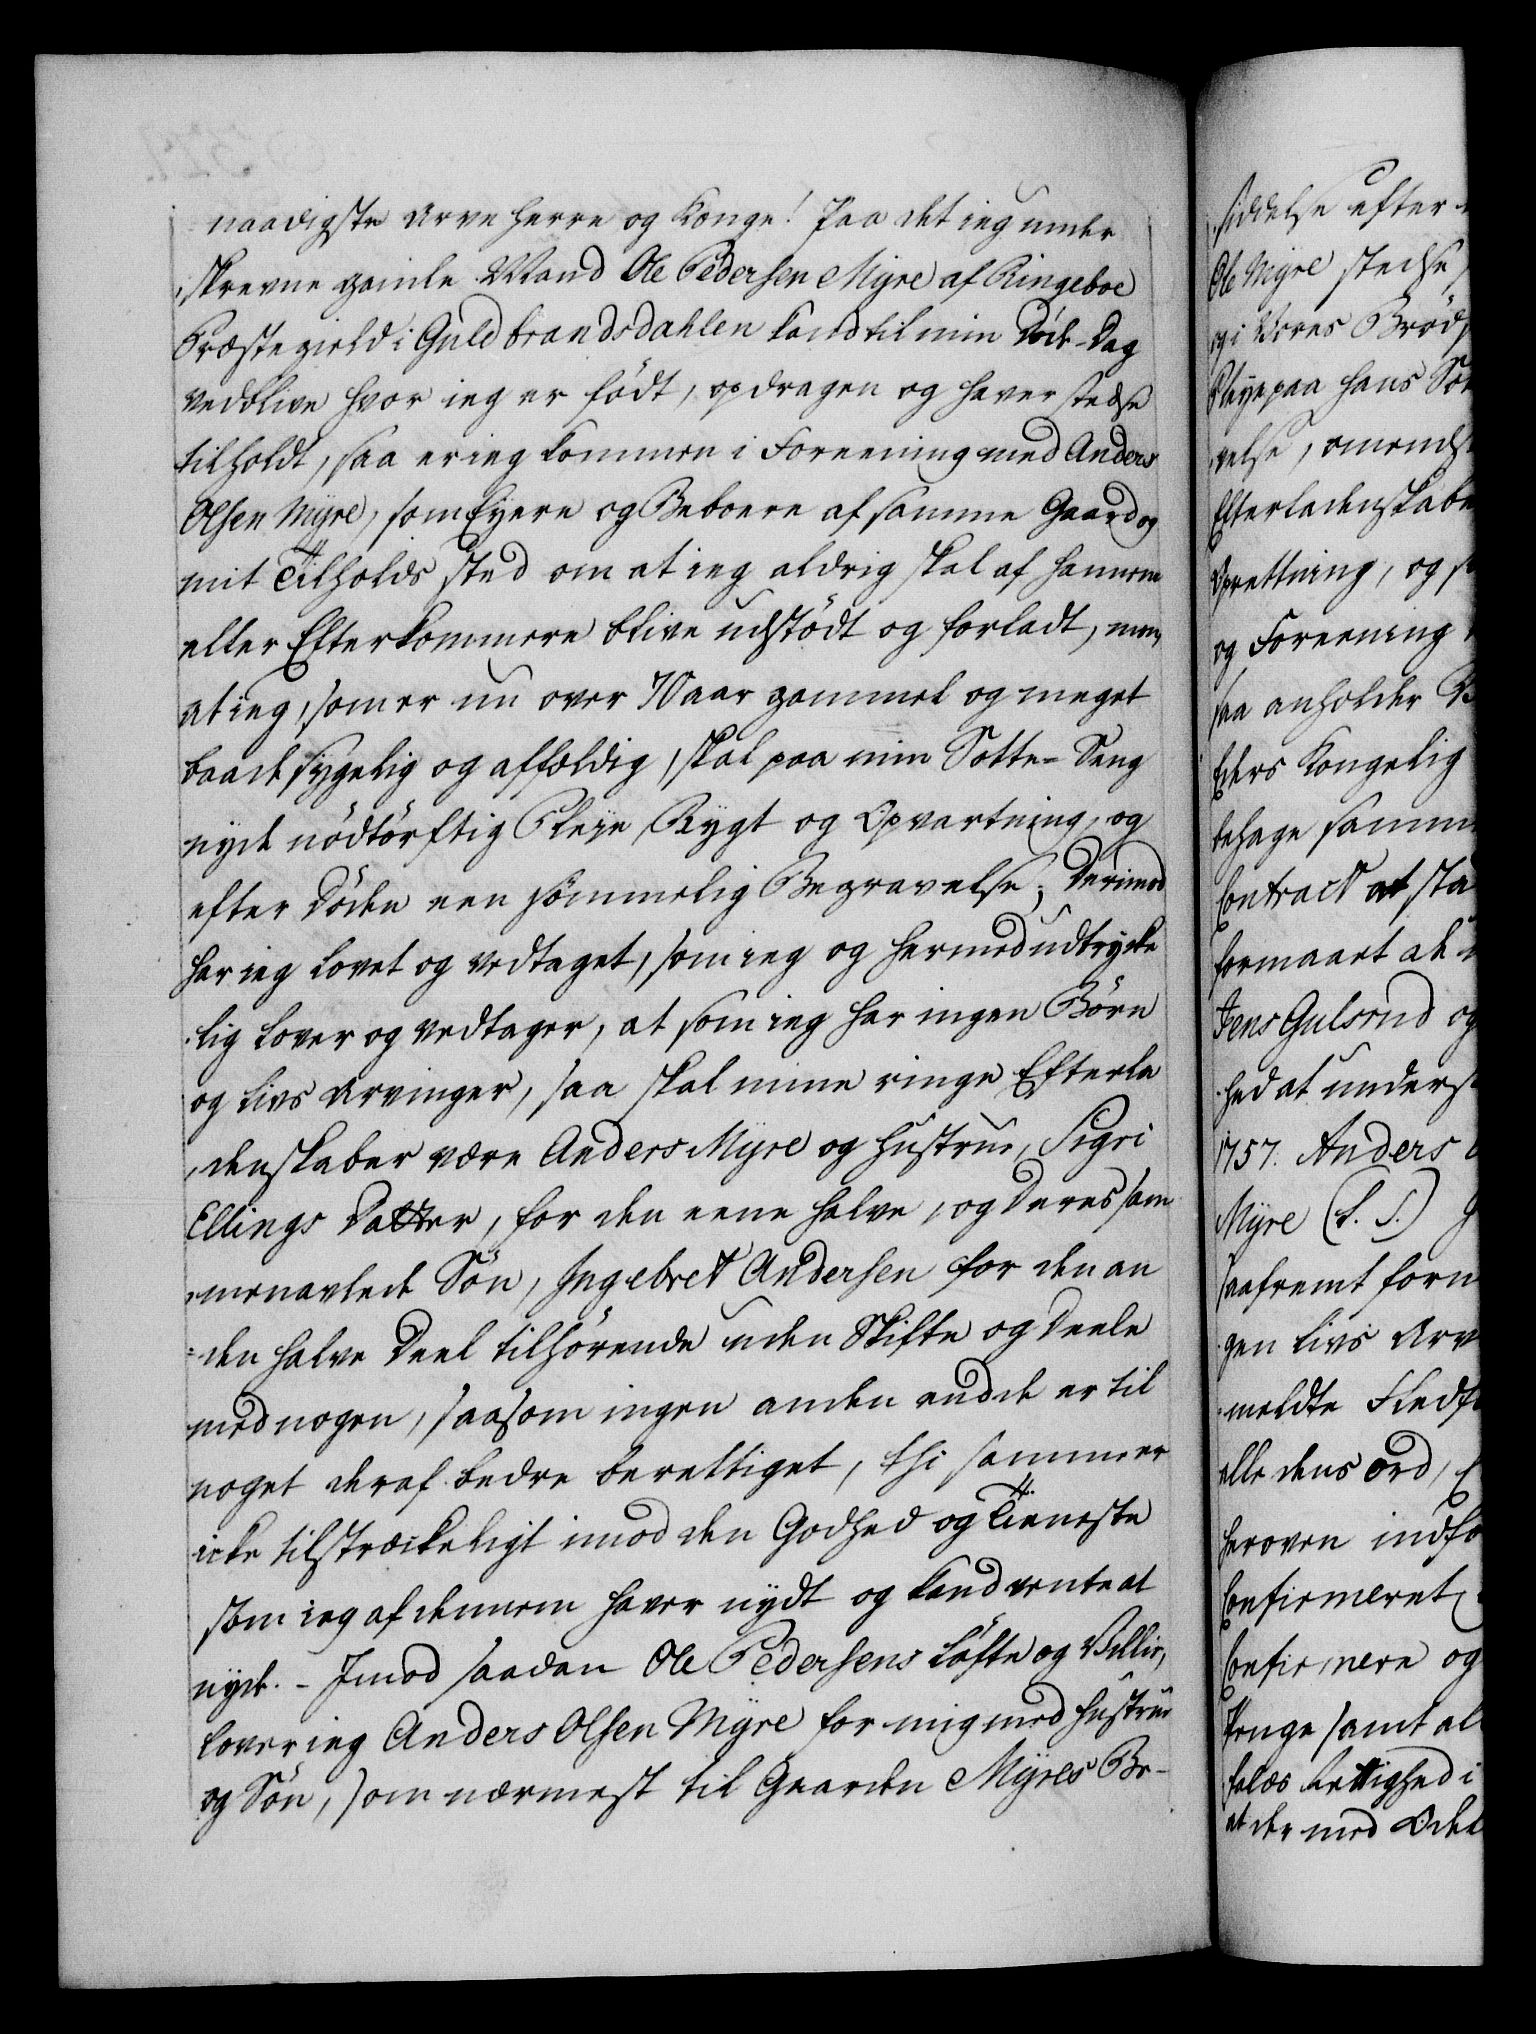 naadigste Arve Herre og Konge! Paa det ieg under
skrevne gamle Mand Ole Pedersen Myre af Ringeboe
Præstegield i Guldbrandsdahlen kand til min Døde-Dag
vedblive hvor ieg er født, opdragen og haver stedse
tilholdt, saa er ieg kommen i Foreening med Anders
Olsen Myre, som Eyere og Beboere af samme Gaard og
mit Tilholds sted om at ieg aldrig skal af hannem
eller Efterkommere blive udstødt og forladt, men
at ieg, som er nu over 70 aar gammel og meget
baade sygelig og affældig, skal paa min Sotte-Seng
nyde nødtørftig Pleye, Rygt og Opvartning, og
efter Døden een sømmelig Begravelse; Derimod
har ieg lovet og vedtaget, som ieg og hermed udtrycke
lig lover og vedtager, at som ieg har ingen Børn
og Livs Arvinger, saa skal mine ringe Efterla
denskaber være Anders Myre og Hustrue, Sigri
Ellings Datter, for den eene halve, og Deres sam
menavlede Søn, Ingebret Andersen for den an
den halve Deel tilhørende uden Skifte og Deele
med nogen, saasom ingen anden endde er til
noget deraf bedre berettiget, thi samme er
icke tilstræckeligt imod den Godhed og Tieneste
som ieg af dennem haver nydt og kand vente at
nyde. - Imod saadan Ole Pedersens Løfte og Villie,
lover ieg Anders Olsen Myre for mig med Hustrue
og Søn, som nærmest til Gaarden Myres Be-
siddelse efter
Ole Myre stedse
og i Vores Brød
Pleye paa hans
velse, omendsk
Efterladenskabe
Oprettning, og
og Foreening
saa anholder
Eders Kongelig
behage samm
Contract at sta
formaaet at
Jens Gulsrud og
hed at unders
1757. Anders
Myre (L. S.)
saafremt forn
gen Livs Arv
meldte Fledf
alle dens Ord,
heroven indfø
Confirmeret
Confirmere og
Penge samt al
fales Rettighed i
at der med Odel